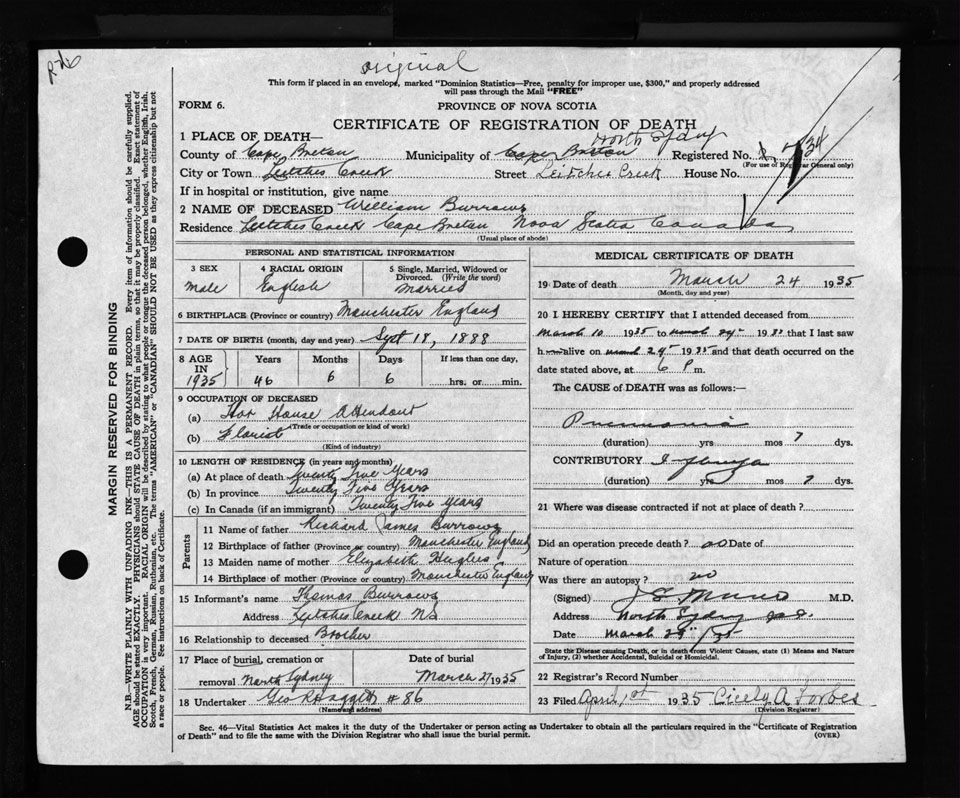 original
This form if placed in an envelope, marked "Dominion Statistics—Free, penalty for improper use, $300," and properly addressed
will pass through the Mail "FREE"
FORM 6. PROVINCE OF NOVA SCOTIA
CERTIFICATE OF REGISTRATION OF DEATH
1 PLACE OF DEATH— North Sydney
County of Cape Breton Municipality of Cape Breton Registered No. 34
(For use of Registrar General only)
City or Town Leitches Creek Street Leitches Creek House No.
If in hospital or institution, give name
2 NAME OF DECEASED William Burrows
Residence Leitches Creek Cape Breton Nova Scotia Canada
(Usual place of abode)
PERSONAL AND STATISTICAL INFORMATION
3 SEX 4 RACIAL ORIGIN 5 Single, Married, Widowed or
Divorced. (Write the word)
Male English Married
6 BIRTHPLACE (Province or country) Manchester England
7 DATE OF BIRTH (month, day and year) Sept 18, 1888
8 AGE Years Months Days If less than one day,
IN
1935 46 6 6 hrs. or min.
9 OCCUPATION OF DECEASED
(a) Hot House Attendant
(Trade or occupation or kind of work)
(b) Florist
(Kind of industry)
10 LENGTH OF RESIDENCE (in years and months)
(a) At place of death Twenty Five Years
(b) In province Twenty Five Years
(c) In Canada (if an immigrant) Twenty Five Years
Parents
11 Name of father Richard James Burrows
12 Birthplace of father (Province or country) Manchester England
13 Maiden name of mother Elizabeth Hughes
14 Birthplace of mother (Province or country) Manchester England
15 Informant's name Thomas Burrows
Address Leitches Creek NS
16 Relationship to deceased Brother
17 Place of burial, cremation or Date of burial
removal North Sydney March 27 1935
18 Undertaker Geo R Haggett #86
(Name and address)
MEDICAL CERTIFICATE OF DEATH
19 Date of death March 24 1935
(Month, day and year)
20 I HEREBY CERTIFY that I attended deceased from
March 10 1935 to March 24 1935 that I last saw
h alive on March 24 1935 and that death occurred on the
date stated above, at 6 P m.
The CAUSE of DEATH was as follows:
Pneumonia
(duration) yrs mos 7 dys.
CONTRIBUTORY
(duration) yrs mos 7 dys.
21 Where was disease contracted if not at place of death?
Did an operation precede death? no Date of
Nature of operation
Was there an autopsy? no
(Signed) M.D.
Address North Sydney
Date March
State the Disease causing Death, or in death from Violent Causes, state (1) Means and Nature
of Injury, (2) whether Accidental, Suicidal or Homicidal.
22 Registrar's Record Number
23 Filed April 1st 1935 Cicely A Forbes
(Division Registrar)
Sec. 46—Vital Statistics Act makes it the duty of the Undertaker or person acting as Undertaker to obtain all the particulars required in the "Certificate of Registration
of Death" and to file the same with the Division Registrar who shall issue the burial permit. (OVER)
MARGIN RESERVED FOR BINDING
N.B.—WRITE PLAINLY WITH UNFADING INK—THIS IS A PERMANENT RECORD. Every item of information should be carefully supplied.
AGE should be stated EXACTLY. PHYSICIANS should STATE CAUSE OF DEATH in plain terms, so that it may be properly classified. Exact statement of
OCCUPATION is very important. RACIAL ORIGIN will be described by stating to what people or tongue the deceased person belonged, whether English, Irish,
Scotch, French, German, Russian, Ruthenian, etc. The terms "AMERICAN" or "CANADIAN" SHOULD NOT BE USED as they express citizenship but not
a race or people. See instructions on back of Certificate.